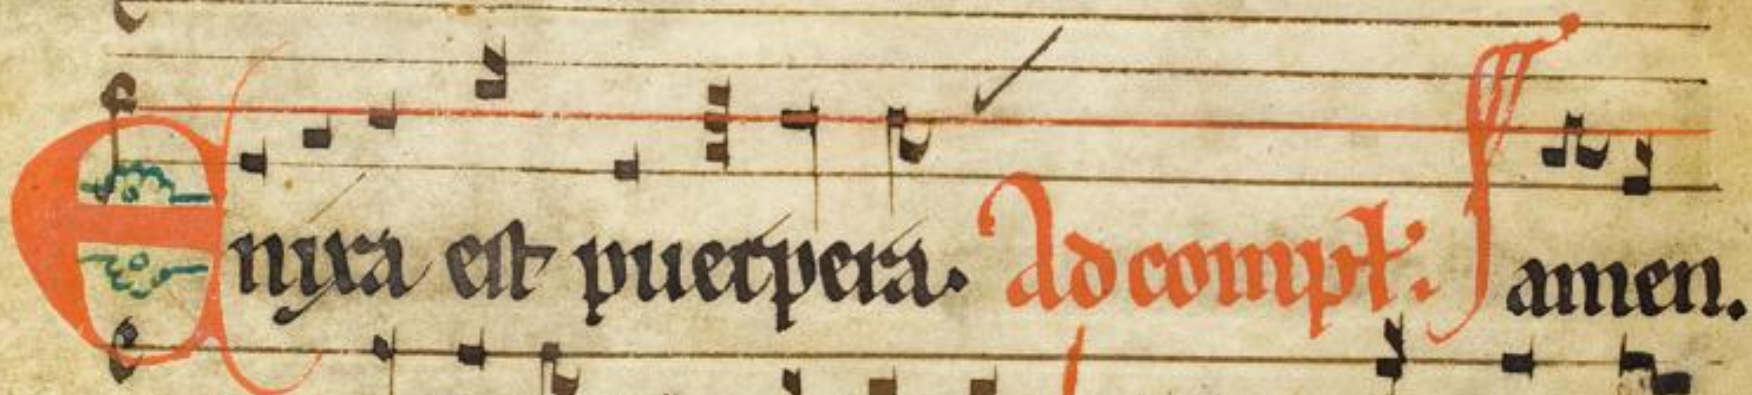 Enixa est puerpera. Ad compl͛. amen.